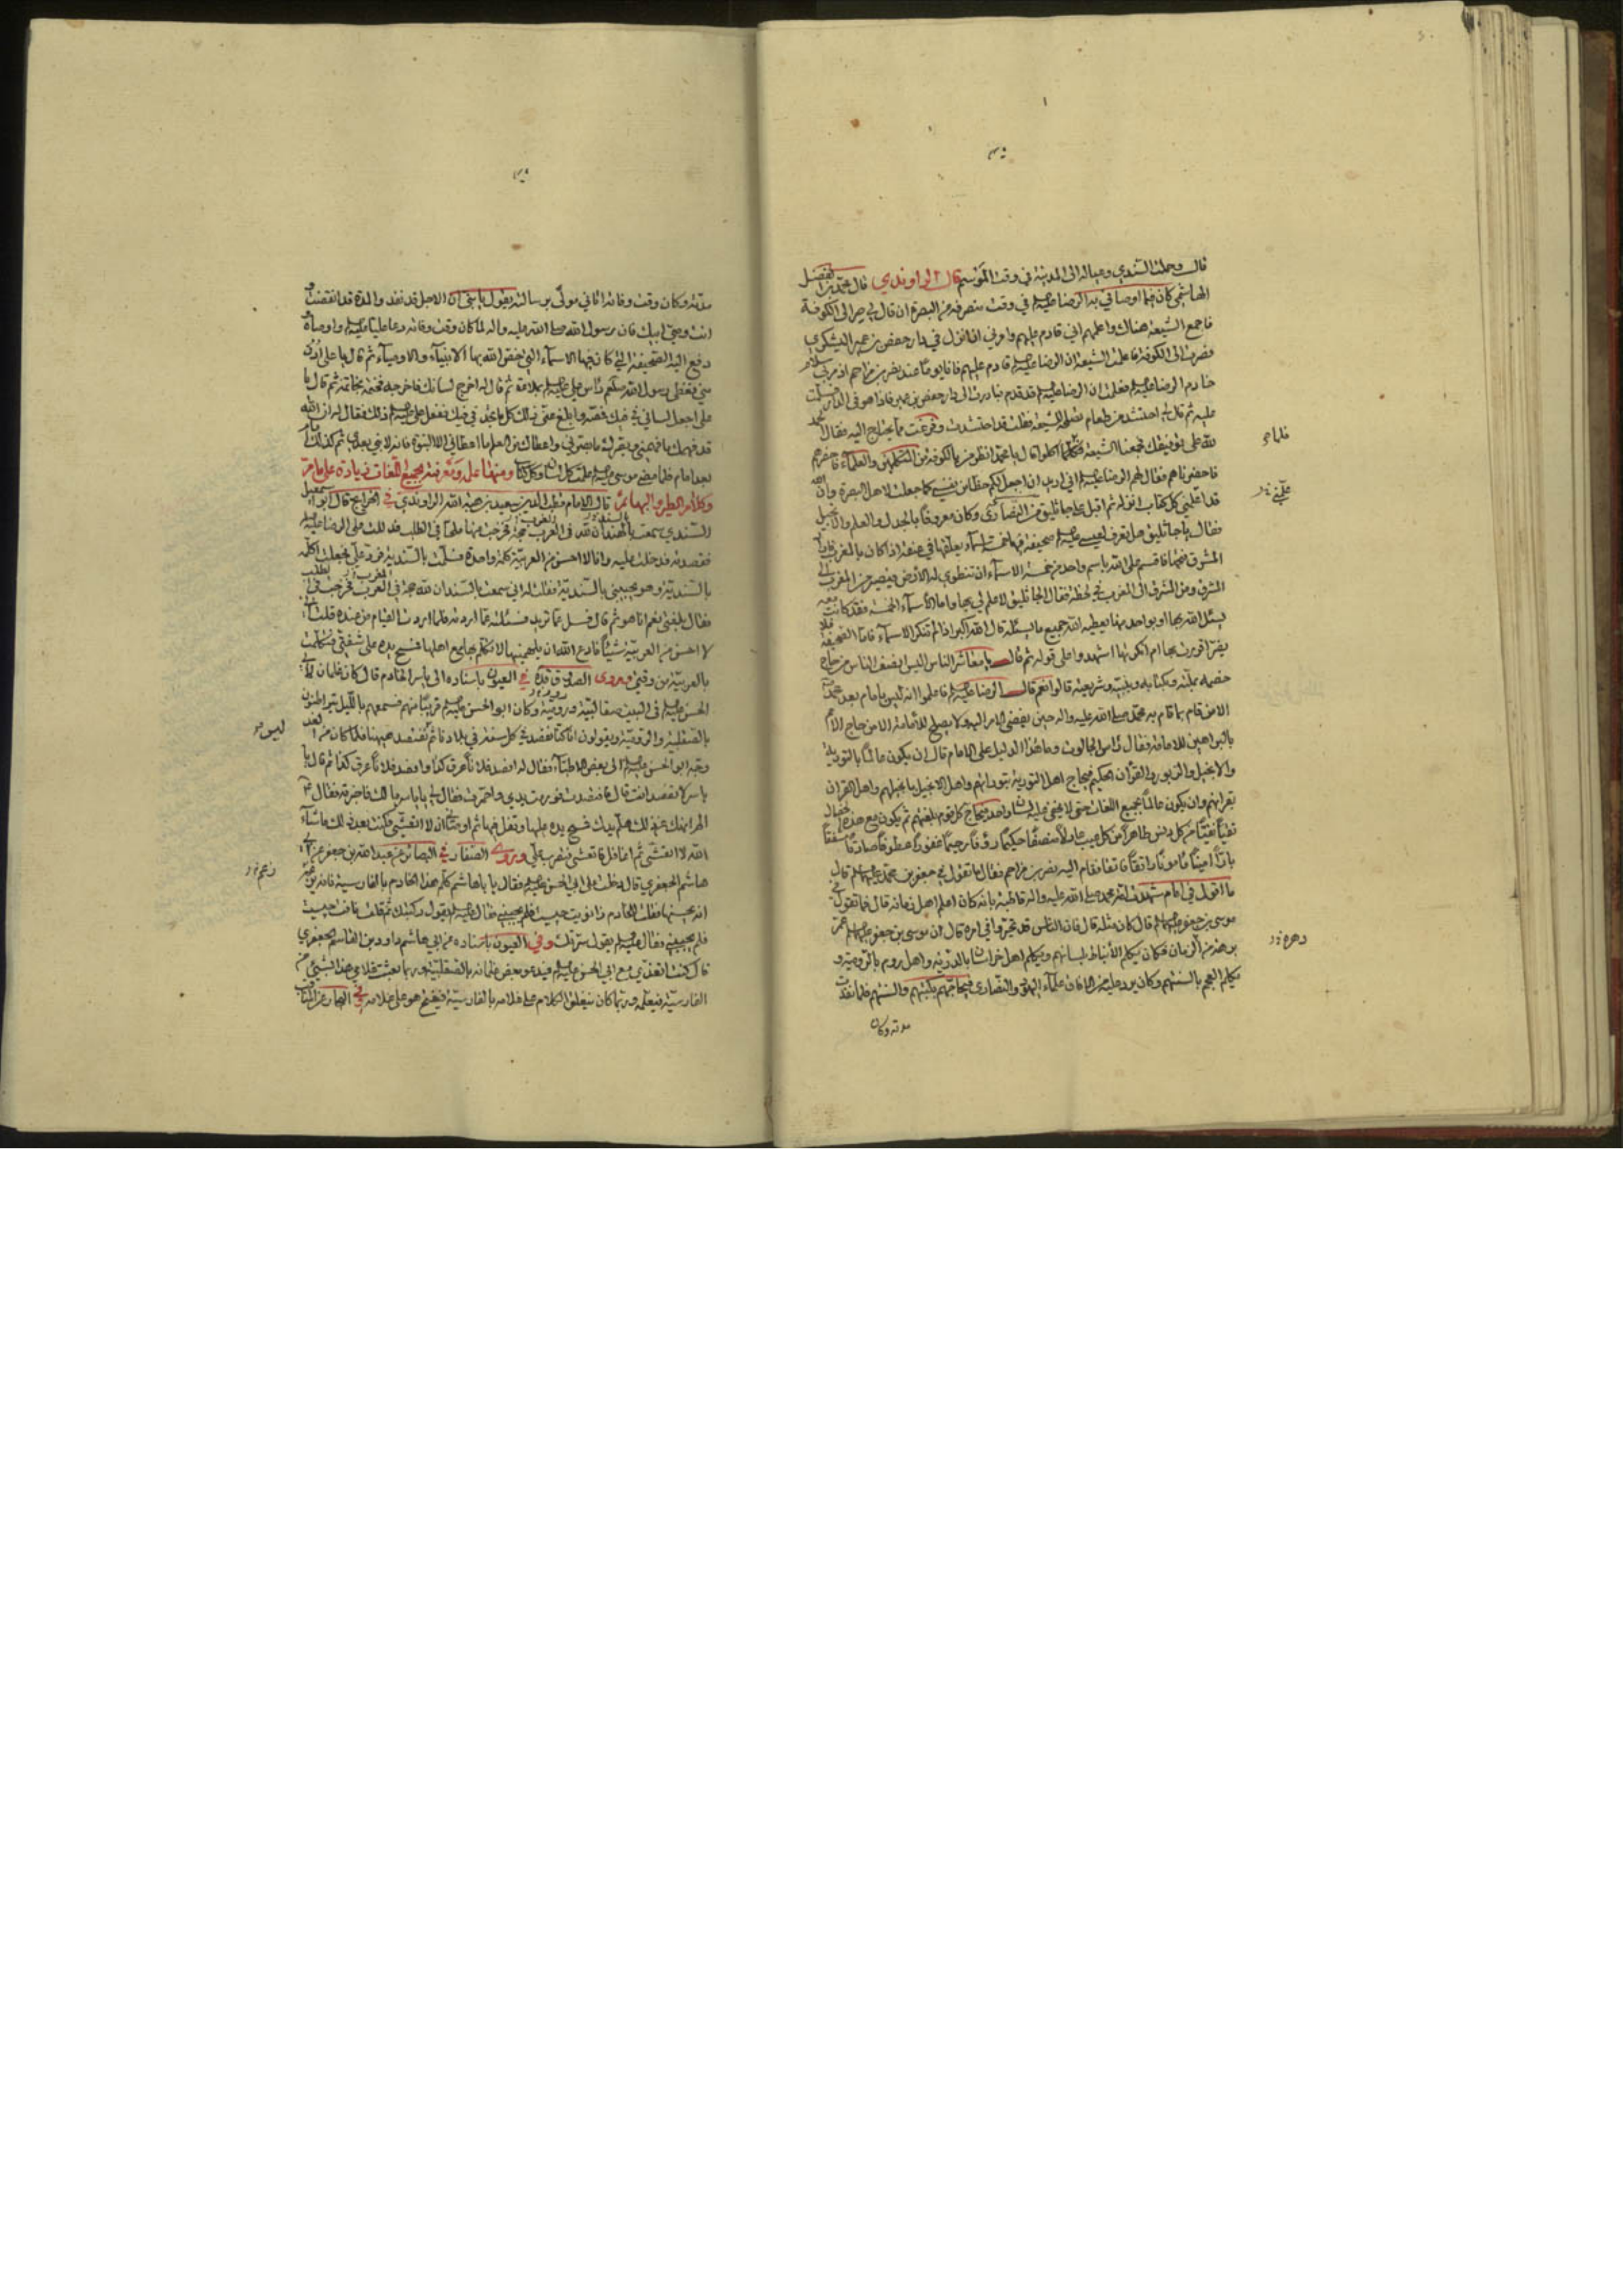 قال وحملت السندي وعياله الى المدينة في وقت الموسم قال الراوندي قال محمد بن الفضل
الهاشمي كان فيما اوصاني به الرضا عليه في وقت منصرفه من البصرة ان قال لي صر الى الكوفة
فاجمع الشيعة هناك واعلمهم اني قادم عليهم وامرني ان انزل في دار حفص بن عمير اليشكري
فصرت الى الكوفة فاعلمت الشيعة ان الرضا عليه قادم عليهم فانا يوما عند نصر بن مزاحم اذ مر بي سلام
خادم الرضا عليه فعلمت ان الرضا عليه قد قدم فبادرت الى دار حفص بن عمير فاذا هو في الدار فسلمت
عليه ثم قال لي احتشد من طعام تصلحه للشيعة فقلت قد احتشدت وفرغت مما يحتاج اليه فقال الحمد
لله على توفيقك فجمعنا الشيعة فلما اكلوا قال يا محمد انظر من بالكوفة من المتكلمين والعلماء فاحضرهم
فاحضرناهم فقال لهم الرضا عليه اني اريد ان اجعل لكم حظا من نفسي كما جعلت لاهل البصرة وان الله
قد اعلمني كل كتاب انزله ثم اقبل على جاثليق من النصارى وكان معروفا بالجدل والعلم والانجيل
فقال يا جاثليق هل تعرف لعيسى عليه صحيفة فيها خمسة اسماء يعلقها في عنقه اذا كان بالمغرب فاراد
المشرق فتحها فاقسم على الله باسم واحد من خمسة الاسماء ان تنطوي له الارض فيصير من المغرب الى
المشرق ومن المشرق الى المغرب في لحظة فقال الجاثليق لا علم لي بها واما الاسماء الخمسة فقد كانت معه
يسئل الله بها او بواحد منها يعطيه الله جميع ما يسئله قال الله اكبر اذا لم تنكر الاسماء فاما الصحيفة فلا
يضر اقررت بها ام انكرتها اشهدوا على قوله ثم قال يا معاشر الناس اليس انصف الناس من حاج
خصمه بملته وبكتابه وبنبيه وشريعته قالوا نعم قال الرضا عليه فاعلموا انه ليس بامام بعد محمد
الا من قام بما قام به محمد صلى الله عليه واله حين يفضي الامر اليه ولا يصلح للامامة الا من حاج الامم
بالبراهين للامامة فقال راس الجالوت وما هذا الدليل على الامام قال ان يكون عالما بالتورية
والانجيل والزبور والقرآن الحكيم فيحاج اهل التورية بتوراتهم واهل الانجيل بانجيلهم واهل القران
بقرانهم وان يكون عالما بجميع اللغات حتى لا يخفى عليه لسان واحد فيحاج كل قوم بلغتهم ثم يكون مع هذه الخصال
تقيا نقيا من كل دنس طاهرا من كل عيب عادلا منصفا حكيما رؤفا رحيما غفورا عطوفا صادقا مشفقا
بارا امينا مامونا راتقا فاتقا فقام اليه نصر بن مزاحم فقال ما تقول في جعفر بن محمد عليهما قال
ما اقول في امام شهدت امة محمد صلى الله عليه واله قاطبة بانه كان اعلم اهل زمانه قال فما تقول في
موسى بن جعفر عليهما قال كان مثله قال فان الناس قد تحيروا في امره قال ان موسى بن جعفر عليهما عمر
برهة من الزمان فكان يكلم الانباط بلسانهم ويكلم اهل خراسان بالدرية واهل روم بالرومية و
يكلم العجم بالسنتهم وكان يرد عليه من الافاق علماء اليهود والنصارى فيحاجهم بكتبهم والسنتهم فلما نفدت
مدته وكان
مدته وكان وقت وفاته اتاني مولى برسالته يقول يا بني ان الاجل قد نفد والمدة قد انقضت و
انت وصي ابيك فان رسول الله صلى الله عليه واله لما كان وقت وفاته دعا عليا عليه واوصاه و
دفع اليه الصحيفة التي كان فيها الاسماء التي خص الله بها الانبياء والاوصياء ثم قال يا علي ادن
مني فغطى رسول الله صلعم راس علي عليه بملاءة ثم قال له اخرج لسانك فاخرجه فختمه بخاتمه ثم قال يا
علي اجعل لساني في فيك فمصه وابلع عني ذلك كل ما تجد في فيك ففعل علي عليه ذلك فقال له ان الله
قد فهمك ما فهمني وبصرك ما بصرني واعطاك من العلم ما اعطاني الا النبوة فانه لا نبي بعدي ثم كذلك امام
بعد امام فلما مضى موسى عليه علمت كل لسان وكل كتاب ومنها علمه ومعرفته بجميع اللغات زيادة على ما مر
وكلام الطير والبهائم قال الامام قطب الدين سعيد بن هبة الله الراوندي في الخرايج قال ابو اسمعيل
السندي سمعت بالهند ان لله في العرب حجة فخرجت منها في الطلب فدللت على الرضا عليه
فقصدته فدخلت عليه وانا لا احسن من العربية كلمة واحدة فسلمت بالسندية فرد علي بجعلت اكلمه
بالسندية وهو يجيبني بالسندية فقلت له اني سمعت بالسند ان لله حجة في العرب فخرجت في الطلب
فقال بلغني نعم انا هو ثم قال فسل عما تريد فسئلته عما اردته فلما اردت القيام من عنده قلت اني
لا احسن من العربية شيئا فادع الله ان يلهمنيها لاتكلم بها مع اهلها فمسح يده على شفتي فتكلمت
بالعربية من وقتي وروى الصدوق قده في العيون باسناده الى ياسر الخادم قال كان غلمان لابي
الحسن عليه في البيت صقالبة ورومية وكان ابو الحسن عليه قريبا منهم فسمعهم بالليل يتراطنون
بالصقلبية والرومية ويقولون انا كنا نفتصد في كل سنة في بلادنا ثم نفتصد هيهنا فلما كان من الغد
وجه ابو الحسن عليه الى بعض الاطباء فقال له افصد فلانا عرق كذا وافصد فلانا عرق كذا ثم قال يا
ياسر لا تفتصد انت قال فافتصدت فورمت يدي واحمرت فقال لي يا ياسر ما لك فاخبرته فقال
الم انهك عن ذلك هلم يدك فمسح يده عليها وتفل فيها ثم اوصاني ان لا اتعشى فكنت بعد ذلك ما شاء
الله لا اتعشى ثم اغافل فاتعشى فيضرب علي وروى الصفار في البصائر عن عبد الله بن جعفر عن ابي
هاشم الجعفري قال دخلت على ابي الحسن عليه فقال يا باهاشم كلم هذا الخادم بالفارسية فانه يزعم
انه يحسنها فقلت للخادم زانويت چيست فلم يجبني فقال عليه يقول ركبتك ثم قلت نافت چيست
فلم يجبني فقال عليه يقول سرتك وفي العيون باسناده عن ابي هاشم داود بن القاسم الجعفري
قال كنت اتغدى مع ابي الحسن عليه فيدعو بعض غلمانه بالصقلبية وربما بعثت غلامي هذا بشيئ من
الفارسية فيعلمه وربما كان ينغلق الكلام على غلامه بالفارسية فيفتح هو على غلامه في البحار عن المناقب